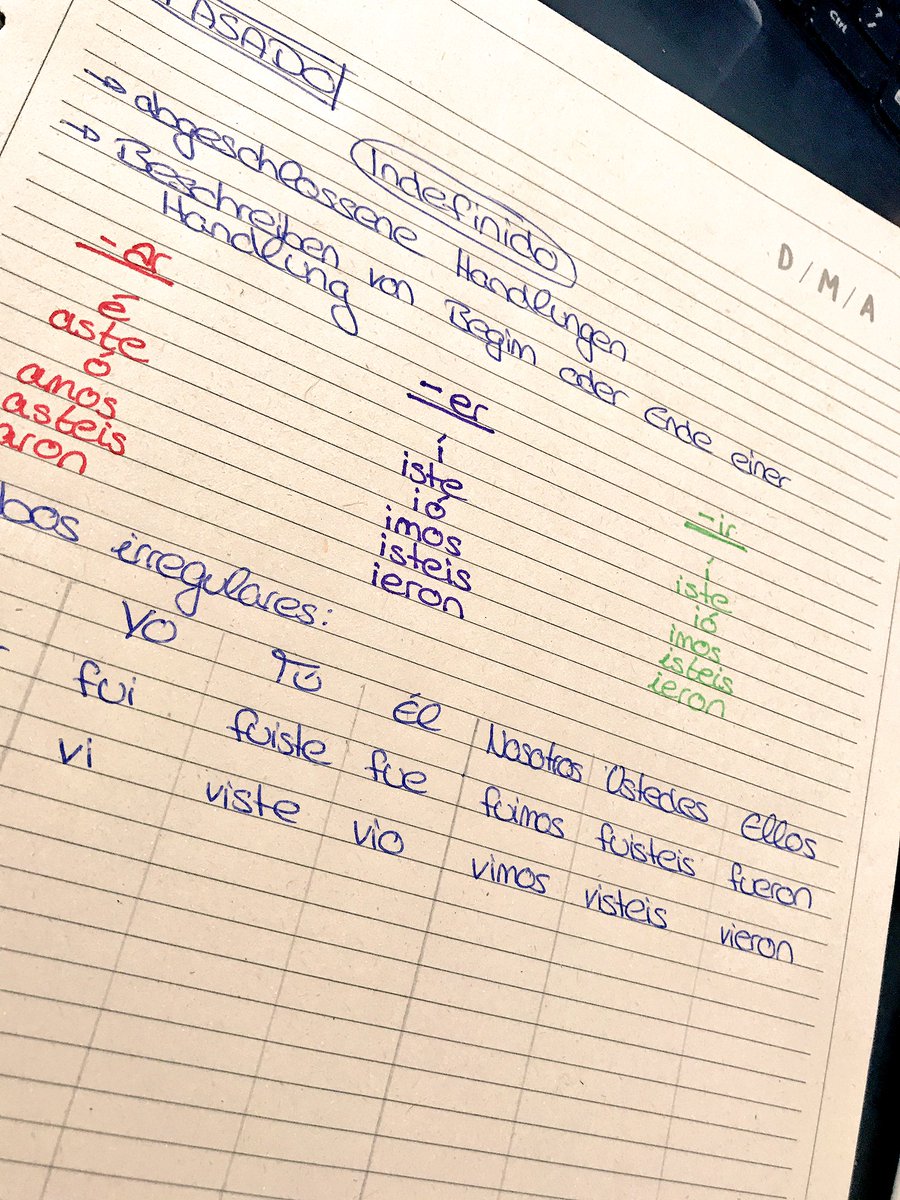 PASADO
Indefinido
→ abgeschlossene Handlungen
→ Beschreiben von Begin oder Ende einer
Handlung
D/M/A
-ar
é
aste
ó
amos
asteis
aron
-er
í
iste
ió
imos
isteis
ieron
-ir
í
iste
ió
imos
isteis
ieron
bos irregulares:
Yo Tú Él Nosotros Ustedes Ellos
fui fuiste fue fuimos fuisteis fueron
vi viste vio vimos visteis vieron
Ctrl